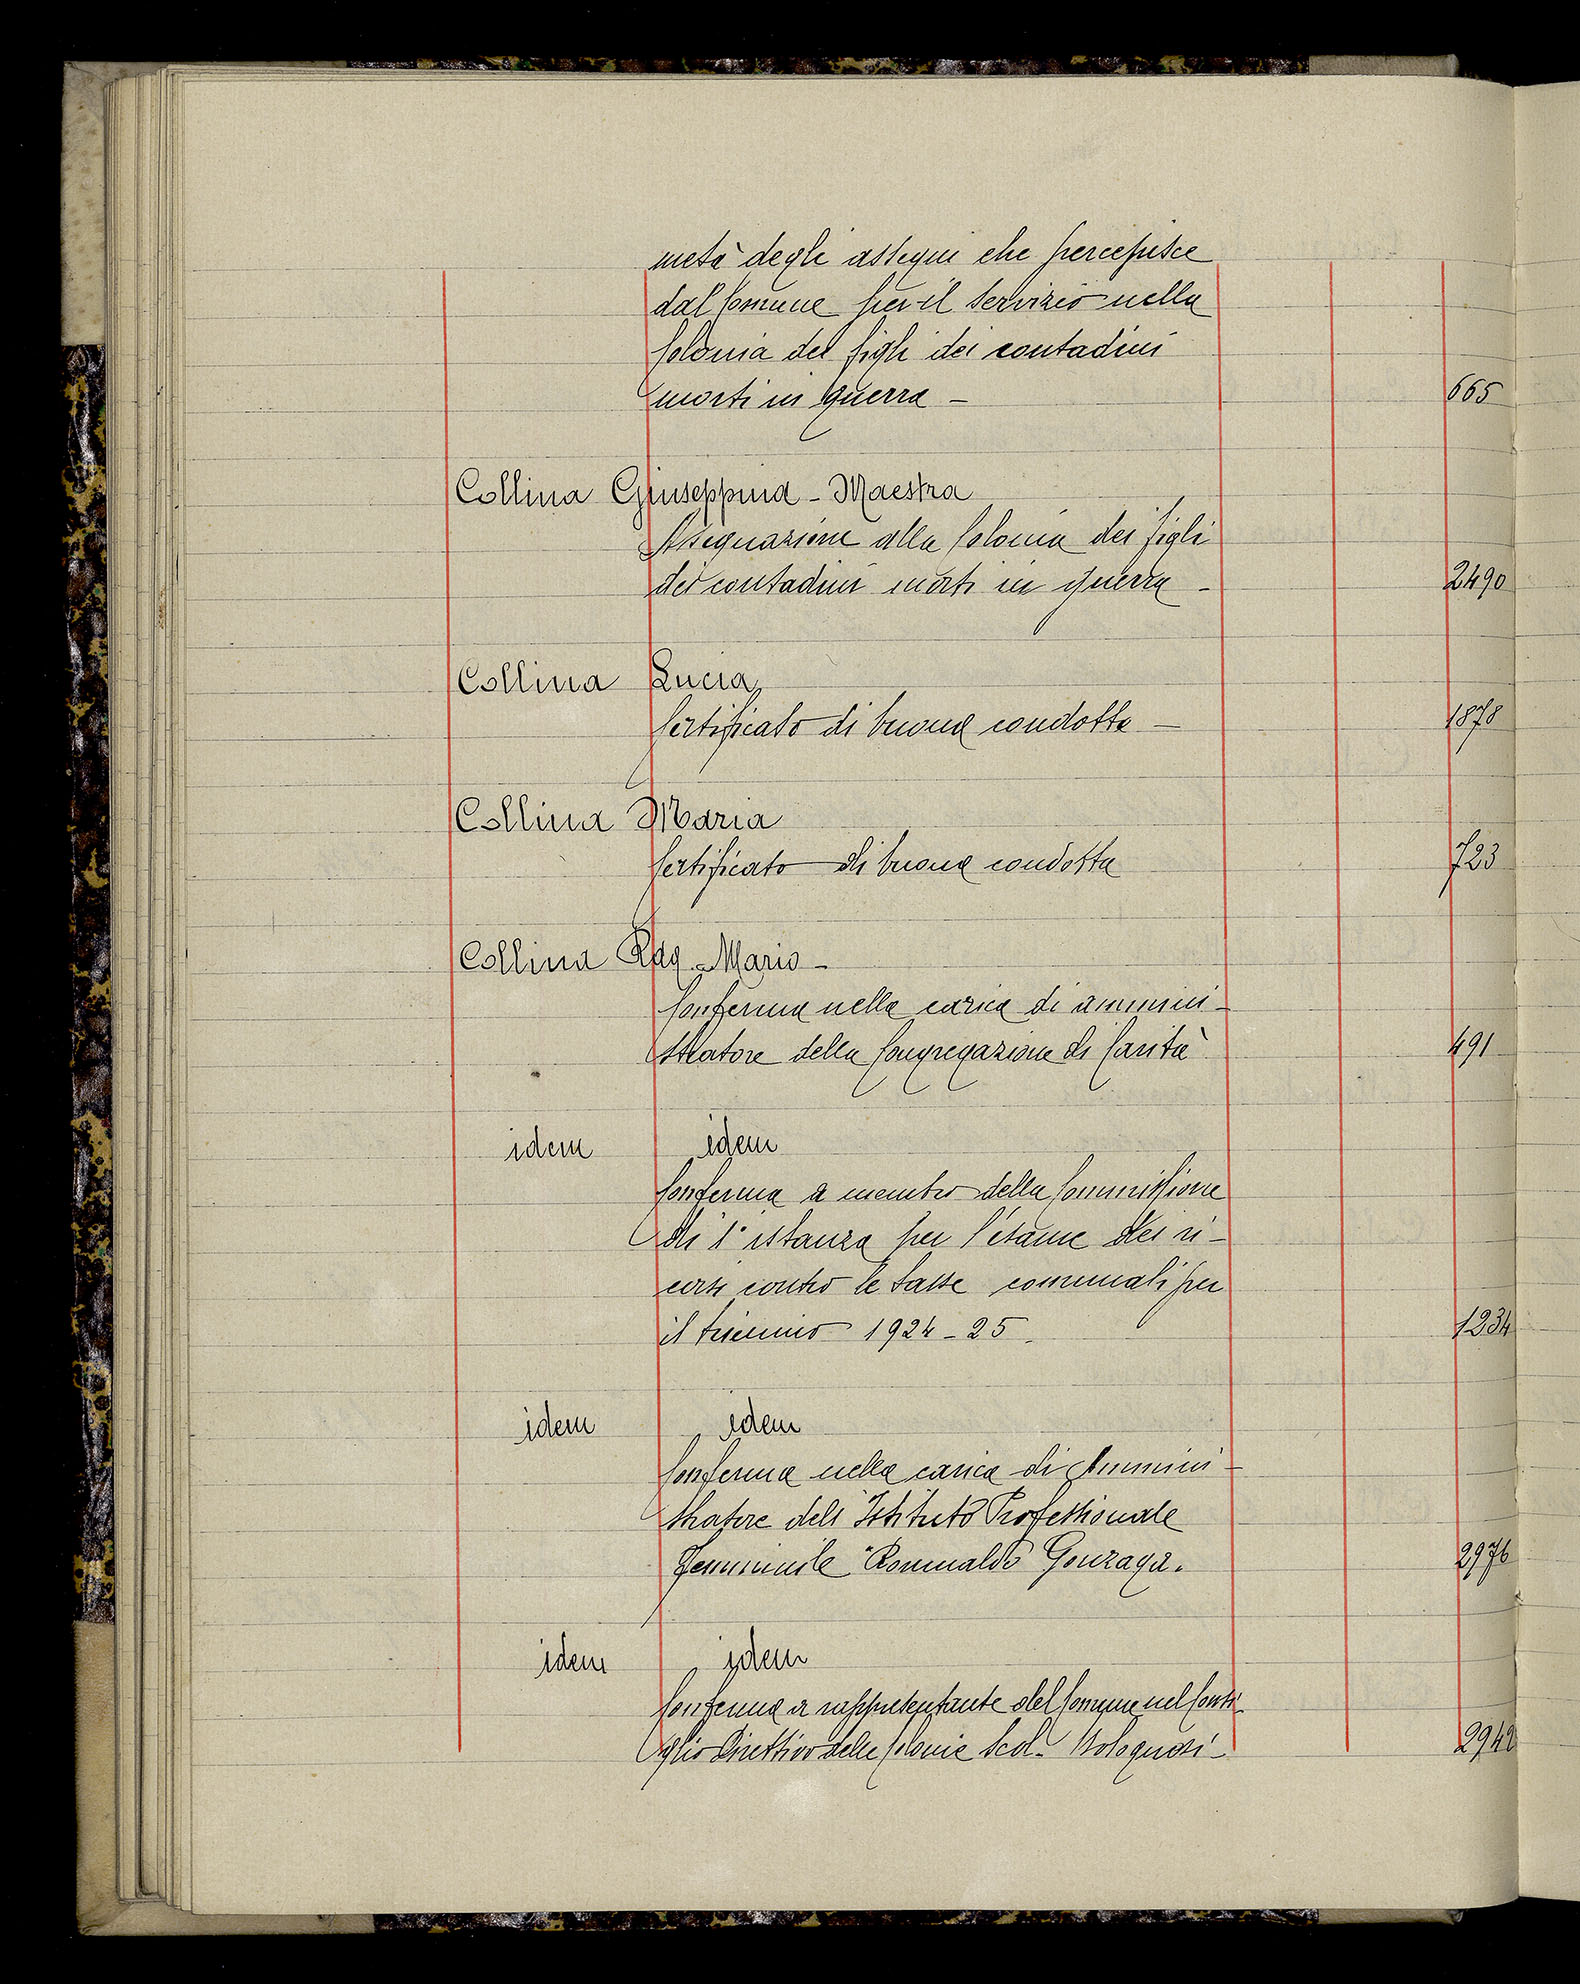 metà degli assegni che percepisce
dal Comune per il servizio nella
Colonia dei figli dei contadini
morti in guerra - 665
Collina Giuseppina - Maestra
Assegnazione alla Colonia dei figli
dei contadini morti in guerra - 2490
Collina Lucia
Certificato di buona condotta - 1878
Collina Maria
Certificato di buona condotta 723
Collina Rag. Mario -
Conferma nella carica di ammini-
stratore della Congregazione di Carità 491
idem idem
Conferma a membro della Commissione
di 1° istanza per l'esame dei ri-
corsi contro le tasse comunali per
il biennio 1924-25. 1234
idem idem
Conferma nella carica di Ammini-
stratore dell'Istituto Professionale
Femminile "Romualdo Gonzaga. 2976
idem idem
Conferma a rappresentante del Comune nel Consi-
glio Direttivo delle Colonie Scol. Bolognesi - 2942